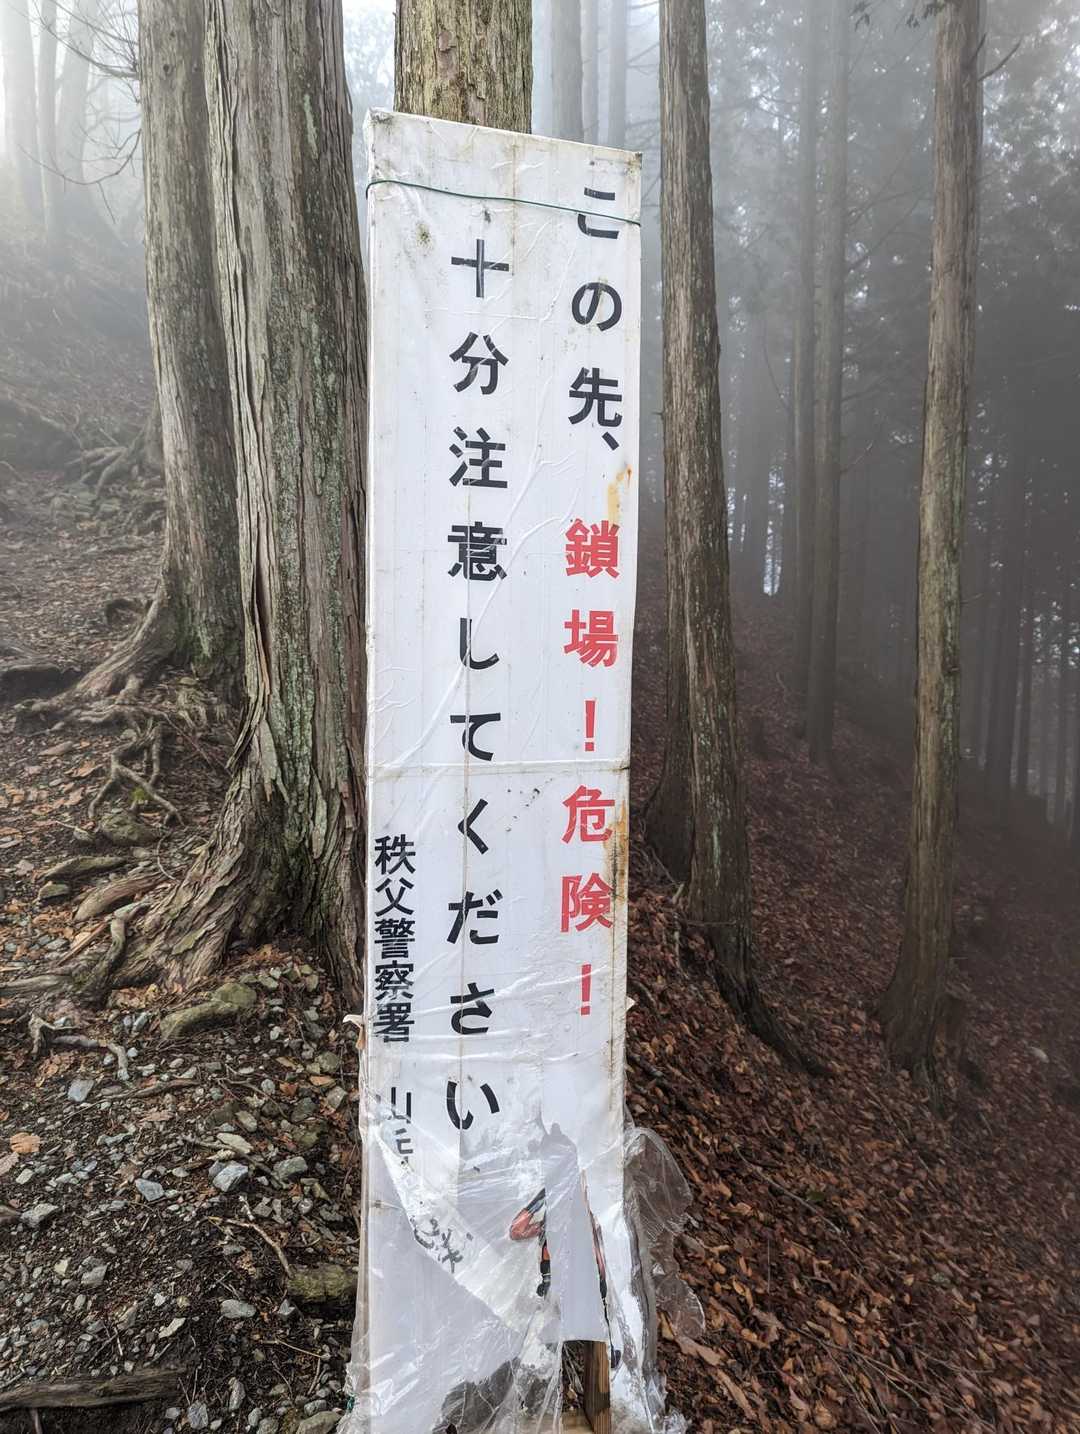 この先、鎖場！危険！
十分注意してください
秩父警察署 山